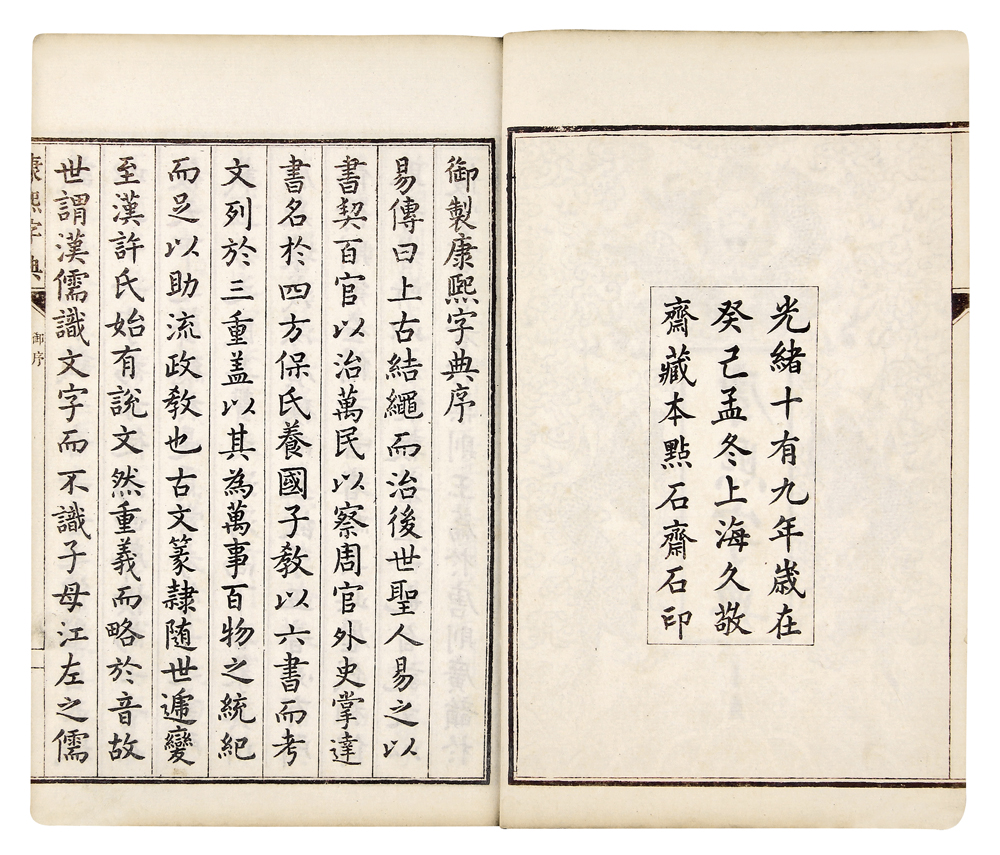 光緒十有九年歲在
癸巳孟冬上海久敬
齋藏本點石齋石印
御製康熙字典序
易傳曰上古結繩而治後世聖人易之以
書契百官以治萬民以察周官外史掌達
書名於四方保氏養國子教以六書而考
文列於三重蓋以其為萬事百物之統紀
而足以助流政教也古文篆隸隨世遞變
至漢許氏始有說文然重義而略於音故
世謂漢儒識文字而不識子母江左之儒
康熙字典
御序